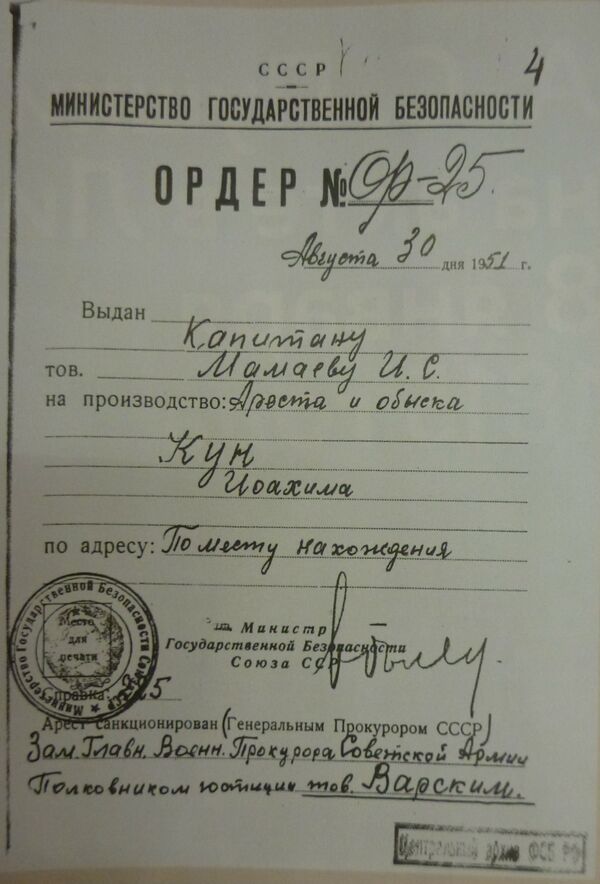 4
СССР
МИНИСТЕРСТВО ГОСУДАРСТВЕННОЙ БЕЗОПАСНОСТИ
ОРДЕР № Ор-25.
Августа 30 дня 1951 г.
Выдан
Капитану
тов. Мамаеву И. С.
на производство: Ареста и обыска
Кун
Иоахима
по адресу: По месту нахождения
Министр
Государственной Безопасности
Союза ССР
Министерство Государственной Безопасности Союза ССР
Место
для
печати
Справка:
Арест санкционирован (Генеральным Прокурором СССР)
Зам. Главн. Военн. Прокурора Советской Армии
Полковником юстиции тов. Варским.
Центральный архив ФСБ РФ